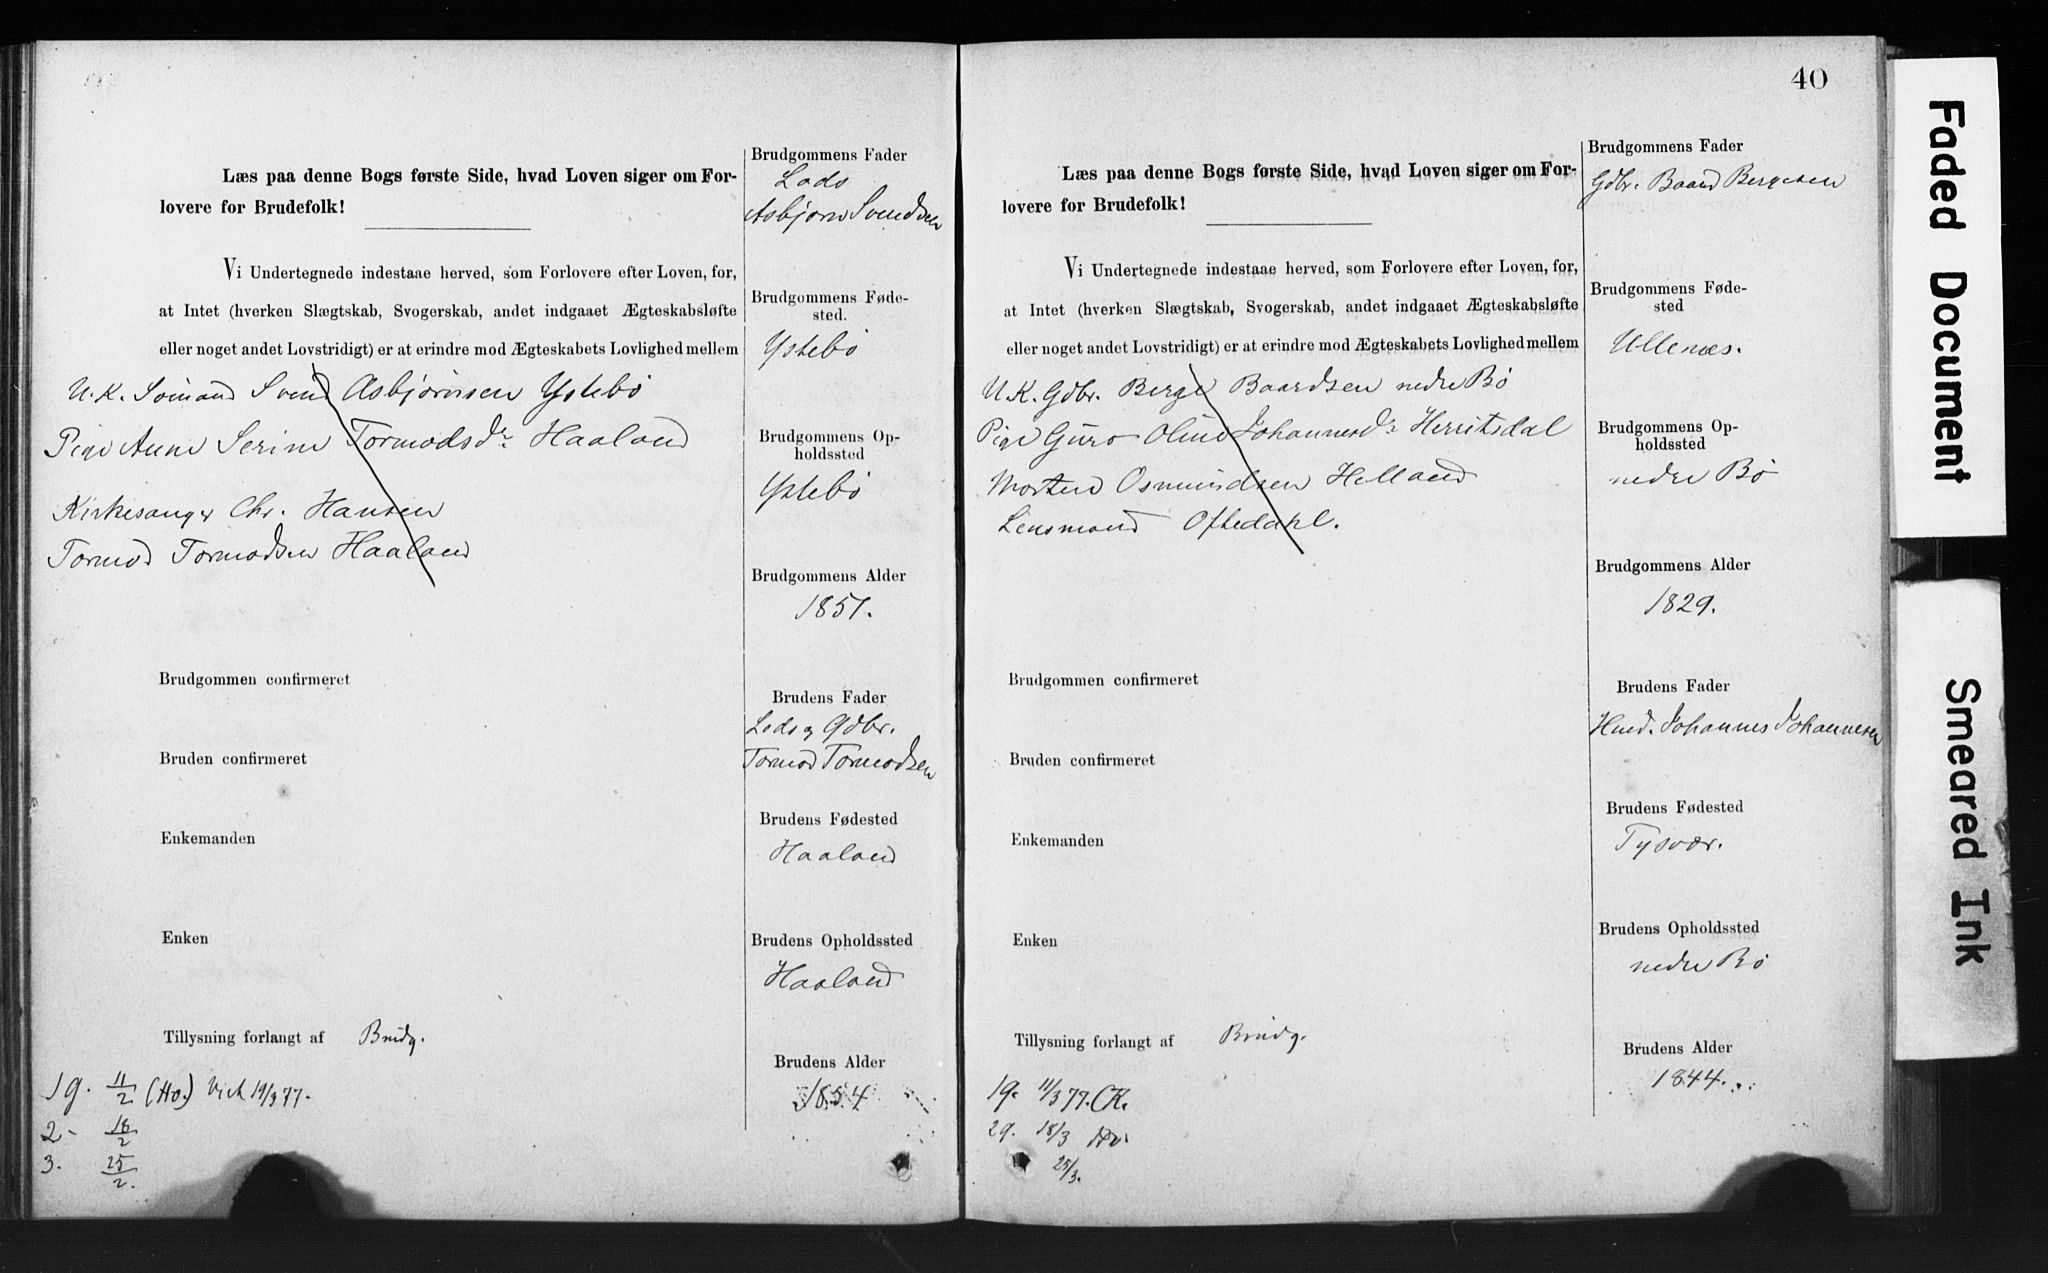 Læs paa denne Bogs første Side, hvad Loven siger om For-
lovere for Brudefolk!
Vi Undertegnede indestaae herved, som Forlovere efter Loven, for,
at Intet (hverken Slægtskab, Svogerskab, andet indgaaet Ægteskabsløfte
eller noget andet Lovstridigt) er at erindre mod Ægteskabets Lovlighed mellem
U.K. Sømand Svend Asbjørnsen Ystebø
Pige Anne Serine Tormodsdr Haaland
Kirkesanger Chr. Hansen
Tormod Tormodsen Haaland
Brudgommen confirmeret
Bruden confirmeret
Enkemanden
Enken
Tillysning forlangt af Brudg.
19. 11/2 (Ho.) Viet 19/3 77.
2. 18/2
3. 25/2.
Brudgommens Fader
Lods
Asbjørn Svendsen
Brudgommens Føde-
sted.
Ystebø
Brudgommens Op-
holdssted
Ystebø
Brudgommens Alder
1851.
Brudens Fader
Lods og Gdbr.
Tormod Tormodsen
Brudens Fødested
Haaland
Brudens Opholdssted
Haaland
Brudens Alder
1854
40
Læs paa denne Bogs første Side, hvad Loven siger om For-
lovere for Brudefolk!
Vi Undertegnede indestaae herved, som Forlovere efter Loven, for,
at Intet (hverken Slægtskab, Svogerskab, andet indgaaet Ægteskabsløfte
eller noget andet Lovstridigt) er at erindre mod Ægteskabets Lovlighed mellem
U.K. Gdbr. Berge Baardsen nedre Bø
Pige Guro Oline Johannesdr Hervitsdal
Morten Osmundsen Helland
Lensmand Oftedahl.
Brudgommen confirmeret
Bruden confirmeret
Enkemanden
Enken
Tillysning forlangt af Brudg.
19. 11/3 77. CK.
29. 18/3
25/3.
Brudgommens Fader
Gdbr. Baard Bergesen
Brudgommens Føde-
sted
Ullenæs.
Brudgommens Op-
holdssted
nedre Bø
Brudgommens Alder
1829.
Brudens Fader
Hmd. Johannes Johannesen
Brudens Fødested
Tysvær.
Brudens Opholdssted
nedre Bø
Brudens Alder
1844.
Faded Document
Smeared Ink